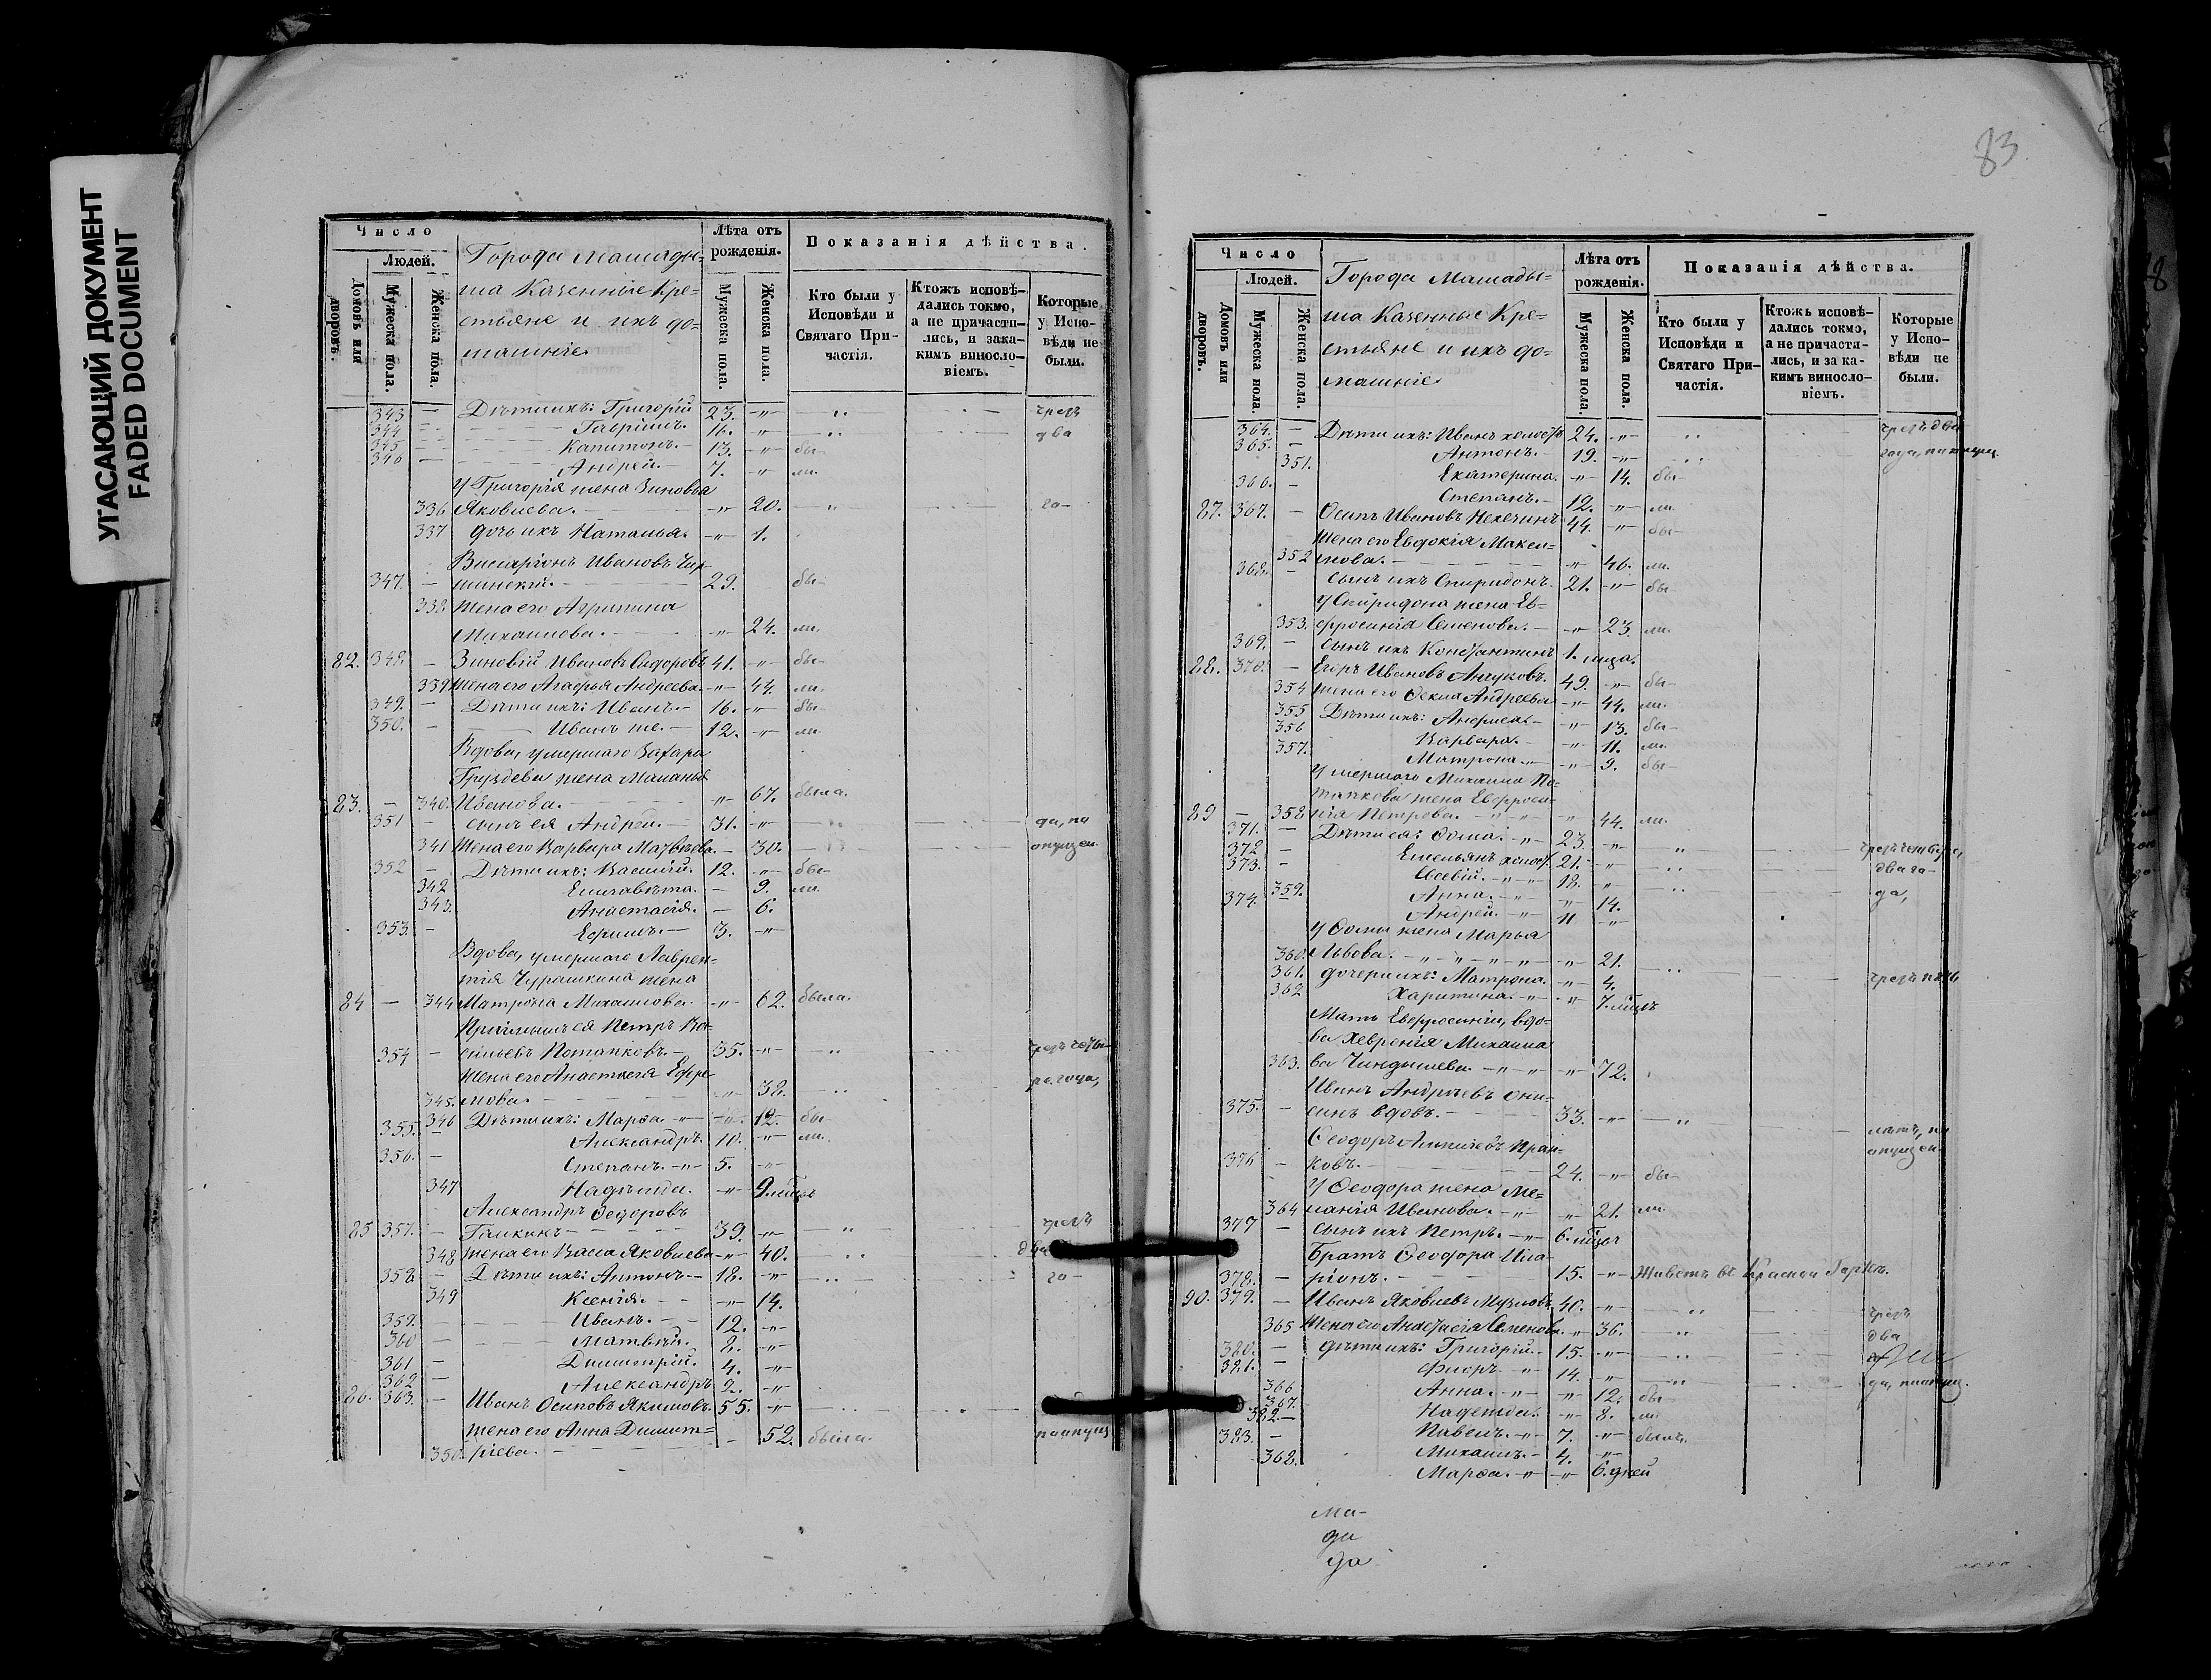 УГАСАЮЩИЙ ДОКУМЕНТ
FADED DOCUMENT
Число
Людей.
Домовъ или дворовъ.
Мужеска пола.
Женска пола.
Города
Казенные Кре-
стьяне и ихъ до-
машніе
Лѣта отъ рожденія.
Мужеска пола.
Женска пола.
Показанія дѣйства.
Кто были у Исповѣди и Святаго Причастія.
Ктожъ исповѣдались токмо, а не причастились, и заказа-кимъ винословіемъ.
Которые у Исповѣди не были.
343 — Дѣти ихъ: Григорій 23. -"- чрезъ
344 Гавріилъ. 16. -"- два
345 Капитонъ. — 13. -"- бы-
346 — Андрей. — 7. -"- ли.
У Григорія жена Зиновья
336 Яковлева. -"- 20. го-
337 дочь ихъ Наталья. -"- 1.
Висаріонъ Ивановъ
347. — 29. бы-
338 жена его Агрипина
Михаилова. -"- 24. ли.
82. 348. — Зиновій Ивановъ Сидоровъ 41. -"- бы-
339 жена его Агафья Андреева. -"- 44. ли.
349. — Дѣти ихъ: Иванъ. — 16. -"- бы-
350. — Иванъ же. — 12. -"- ли.
Вдова, умершаго Захара
Груздева жена Маланья
83. — 340. Иванова. -"- 67. была.
351 — сынъ ея Андрей. — 31. -"- да, по
341 жена его Варвара Матвѣева. — 30. опущен.
352 — Дѣти ихъ: Василій. 12. -"- бы-
342 Елисавѣта. — 9. ли.
343. Анастасія. — 6.
353. — Ефимъ. — 3. -"-
Вдова, умершаго Лаврен-
тія Чурашкина жена
84 — 344 Матрона Михаилова. -"- 62. была.
Пріемышъ ея Петръ Ва-
354 — сильевъ Потапковъ. — 35. -"- чрезъ четы-
жена его Анастасія Ефре-
345. мова. -"- 38. ре года,
346 Дѣти ихъ: Марѳа. -"- 12. бы-
355. — Александръ. 10. -"- ли.
356. — Степанъ. -"- 5. -"-
347 Надежда. -"- 9. мѣсяц
Александръ Ѳедоровъ
85 357. — Галкинъ 39. -"- чрезъ
348 жена его Васса Яковлева -"- 40. два
358 — Дѣти ихъ: Антонъ. — 18. -"- го-
349 Ксенія. -"- 14.
359. Иванъ. — 12. -"-
360 Матвѣй. 8. -"-
361 — Димитрій. 4. -"-
362 — Александръ 2. -"-
86. 363. — Иванъ Осиповъ Якимовъ. 55. -"-
жена его Анна Димит-
350. ріева. 52. была. по опущ.
83
Число
Людей.
Домовъ или дворовъ.
Мужеска пола.
Женска пола.
Города
Казенные Кре-
стьяне и ихъ до-
машніе
Лѣта отъ рожденія.
Мужеска пола.
Женска пола.
Показанія дѣйства.
Кто были у Исповѣди и Святаго Причастія.
Ктожъ исповѣдались токмо, а не причастились, и за какимъ винословіемъ.
Которые у Исповѣди не были.
364. — Дѣти ихъ: Иванъ холостъ 24. -"- чрезъ два
365. — Антонъ. — 19. -"- года, по опущ.
351. Екатерина. -"- 14. бы-
366. — Степанъ. — 12. -"- ли.
87. 367. — Осипъ Ивановъ 44. -"- бы-
жена его Евдокія Макси-
352 мова. -"- 46. ли.
368. — сынъ ихъ Спиридонъ. 21. -"- бы
У Спиридона жена Ев-
353. фросинія Семенова. — -"- 23. ли.
369. — сынъ ихъ Константинъ 1. мѣсяца.
88. 370. — Егоръ Ивановъ 49. -"- бы-
354 жена его Ѳекла Андреева -"- 44. ли.
355 Дѣти ихъ: -"- 13. бы-
356 Варвара. — -"- 11. ли.
357. Матрона -"- 9. бы-
Умершаго Михаила По-
тапкова жена Евфроси-
89 — 358 нія Петрова. -"- 44. ли.
371. — Дѣти ея: Ѳома. -"- 23. -"-
372 — Емельянъ холост. 21. -"- чрезъ четыре,
373. — Евсевій. -"- 18. -"- два го-
359. Анна. -"- 14. да,
374. Андрей. -"- 11 -"-
У Ѳомы жена Марья
360. Львова. -"- 21.
361. дочери ихъ: Матрона. -"- 4. чрезъ пять
362 Харитина. -"- 7. мѣсяцъ
Мать Евфросиніи, вдо-
ва Хеврѳнія Михаило-
363. ва -"- 72.
Иванъ Андреевъ Они-
375. — синъ вдовъ. 33. -"- лѣтъ, по
Ѳеодоръ опущен.
376 — ковъ. 24. -"- бы-
У Ѳеодора жена Ме-
364 ланія Иванова. -"- 21. ли.
377 — сынъ ихъ Петръ. -"- 6. мѣсяцъ
Братъ Ѳеодора Ила-
378. — ріонъ. 15. -"- Живетъ въ Красной Горкѣ.
90. 379. — Иванъ Яковлевъ 40. -"- чрезъ
365 жена его Анастасія Семенова. -"- 36. два
380. — дѣти ихъ: Григорій. — 15. -"-
381. — Флоръ -"- 14. -"- да, по опущ.
366 Анна. -"- 12. бы-
367. Надежда. -"- 8. ли
382. — Павелъ. -"- 7. -"- былъ.
383. — Михаилъ. — 4. -"-
368. Марѳа. -"- 6. дней